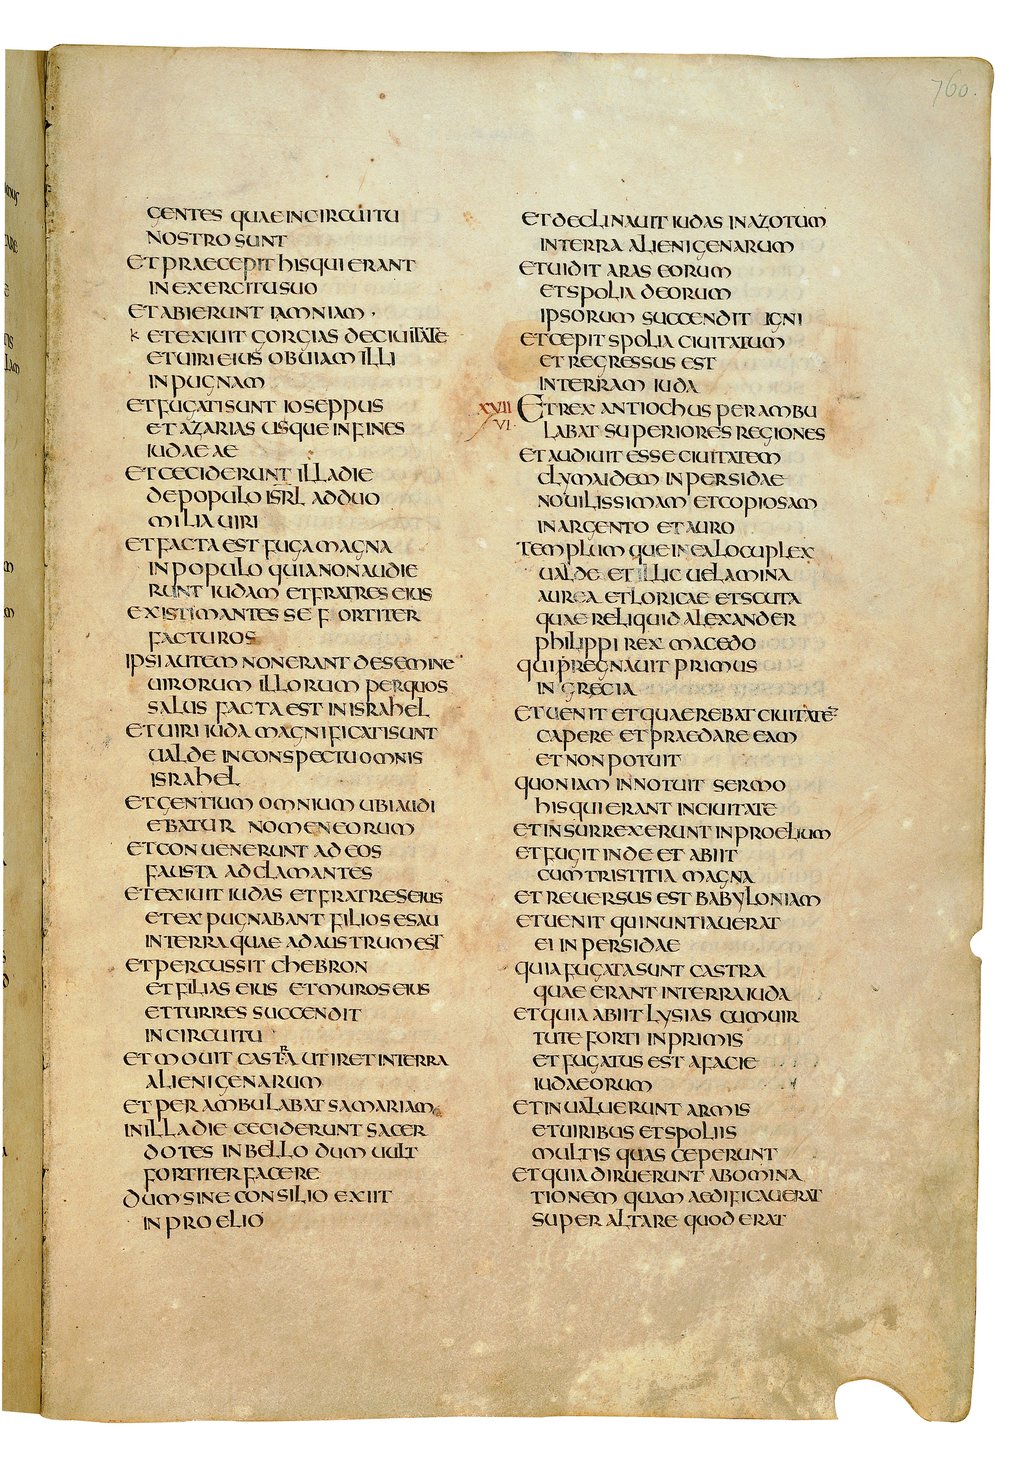 760.
GENTES QUAE IN CIRCUITU
NOSTRO SUNT
ET PRAECEPIT HIS QUI ERANT
IN EXERCITU SUO
ET ABIERUNT IAMNIAM
ET EXIUIT GORGIAS DE CIUITATE
ET UIRI EIUS OBUIAM ILLI
IN PUGNAM
ET FUGATI SUNT IOSEPPUS
ET AZARIAS USQUE IN FINES
IUDAEAE
ET CECIDERUNT ILLA DIE
DE POPULO ISRL AD DUO
MILIA UIRI
ET FACTA EST FUGA MAGNA
IN POPULO QUIA NON AUDIE
RUNT IUDAM ET FRATRES EIUS
EXISTIMANTES SE FORTITER
FACTUROS
IPSI AUTEM NON ERANT DE SEMINE
UIRORUM ILLORUM PER QUOS
SALUS FACTA EST IN ISRAHEL
ET UIRI IUDA MAGNIFICATI SUNT
UALDE IN CONSPECTU OMNIS
ISRAHEL
ET GENTIUM OMNIUM UBI AUDI
EBATUR NOMEN EORUM
ET CONUENERUNT AD EOS
FAUSTA ADCLAMANTES
ET EXIUIT IUDAS ET FRATRES EIUS
ET EXPUGNABANT FILIOS ESAU
IN TERRA QUAE AD AUSTRUM EST
ET PERCUSSIT CHEBRON
ET FILIAS EIUS ET MUROS EIUS
ET TURRES SUCCENDIT
IN CIRCUITU
ET MOUIT CASTRA UT IRET IN TERRA
ALIENIGENARUM
ET PERAMBULABAT SAMARIAM
IN ILLA DIE CECIDERUNT SACER
DOTES IN BELLO DUM UULT
FORTITER FACERE
DUM SINE CONSILIO EXIIT
IN PROELIO
ET DECLINAUIT IUDAS IN AZOTUM
IN TERRA ALIENIGENARUM
ET UIDIT ARAS EORUM
ET SPOLIA DEORUM
IPSORUM SUCCENDIT IGNI
ET CEPIT SPOLIA CIUITATUM
ET REGRESSUS EST
IN TERRAM IUDA
XXVII ET REX ANTIOCHUS PERAMBU
VI LABAT SUPERIORES REGIONES
ET AUDIUIT ESSE CIUITATEM
CLYMAIDEM IN PERSIDAE
NOUILISSIMAM ET COPIOSAM
IN ARGENTO ET AURO
TEMPLUM QUE IN EA LOCUPLEX
UALDE ET ILLIC UELAMINA
AUREA ET LORICAE ET SCUTA
QUAE RELIQUID ALEXANDER
PHILIPPI REX MACEDO
QUI PREGNAUIT PRIMUS
IN GRECIA
ET UENIT ET QUAEREBAT CIUITATE
CAPERE ET PRAEDARE EAM
ET NON POTUIT
QUONIAM INNOTUIT SERMO
HIS QUI ERANT IN CIUITATE
ET INSURREXERUNT IN PROELIUM
ET FUGIT INDE ET ABIIT
CUM TRISTITIA MAGNA
ET REUERSUS EST BABYLONIAM
ET UENIT QUI NUNTIAUERAT
EI IN PERSIDAE
QUIA FUGATA SUNT CASTRA
QUAE ERANT IN TERRA IUDA
ET QUIA ABIIT LYSIAS CUM UIR
TUTE FORTI IN PRIMIS
ET FUGATUS EST A FACIE
IUDAEORUM
ET INUALUERUNT ARMIS
ET UIRIBUS ET SPOLIIS
MULTIS QUAS CEPERUNT
ET QUIA DIRUERUNT ABOMINA
TIONEM QUAM AEDIFICAUERAT
SUPER ALTARE QUOD ERAT